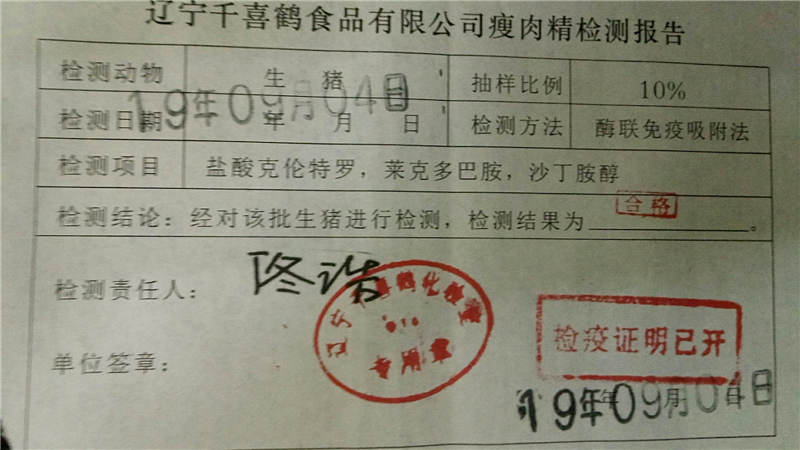 辽宁千喜鹤食品有限公司瘦肉精检测报告
检测动物 生 猪 抽样比例 10%
19年09月04日
检测日期 年 月 日 检测方法 酶联免疫吸附法
检测项目 盐酸克伦特罗，莱克多巴胺，沙丁胺醇
检测结论：经对该批生猪进行检测，检测结果为 合格 。
检测责任人：
辽宁千喜鹤化检室
专用章
检疫证明已开
单位签章：
19年09月04日